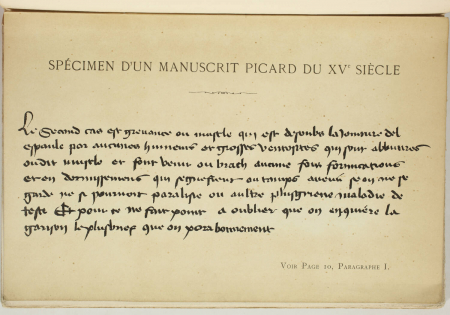 SPÉCIMEN D'UN MANUSCRIT PICARD DU XVe SIÈCLE
Le Second cas est greuance ou mustle qui est desoubs la Jointure del
espaule por aucunes humeurs et grosses ventosites qui sont
oudit mustle et font venir ou brach aucune fois formications
et en dormissement qui segnefient ou tamps avenir se on ne se
garde ne si pourvoit paralisie ou aultre plus griene maladie de
teste Et pour ce ne fait point a oublier que on enquiere la
garison le plus brief que on pora bonnement
VOIR PAGE 10, PARAGRAPHE I.